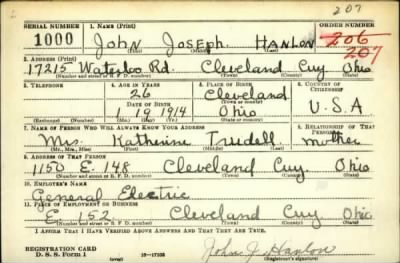 207
SERIAL NUMBER 1. NAME (Print) ORDER NUMBER
1000 John Joseph Hanlon 206
(First) (Middle) (Last) 207
2. ADDRESS (Print)
17215 Waterloo Rd. Cleveland Cuy. Ohio
(Number and street or R. F. D. number) (Town) (County) (State)
3. TELEPHONE 4. AGE IN YEARS 5. PLACE OF BIRTH 6. COUNTRY OF CITIZENSHIP
26 Cleveland
DATE OF BIRTH (Town or county)
1 19 1914 Ohio U.S.A
(Exchange) (No.) (Mo.) (Day) (Yr.) (State or country)
7. NAME OF PERSON WHO WILL ALWAYS KNOW YOUR ADDRESS 8. RELATIONSHIP OF THAT PERSON
Mrs. Katherine Trudell mother
(Mr., Mrs., Miss) (First) (Middle) (Last)
9. ADDRESS OF THAT PERSON
1150 E. 148 Cleveland Cuy. Ohio
(Number and street or R. F. D. number) (Town) (County) (State)
10. EMPLOYER'S NAME
General Electric
11. PLACE OF EMPLOYMENT OR BUSINESS
E. 152 Cleveland Cuy. Ohio
(Number and street or R. F. D. number) (Town) (County) (State)
I AFFIRM THAT I HAVE VERIFIED ABOVE ANSWERS AND THAT THEY ARE TRUE.
REGISTRATION CARD
D. S. S. Form 1 (over) 16—17105 John J. Hanlon
(Registrant's signature)